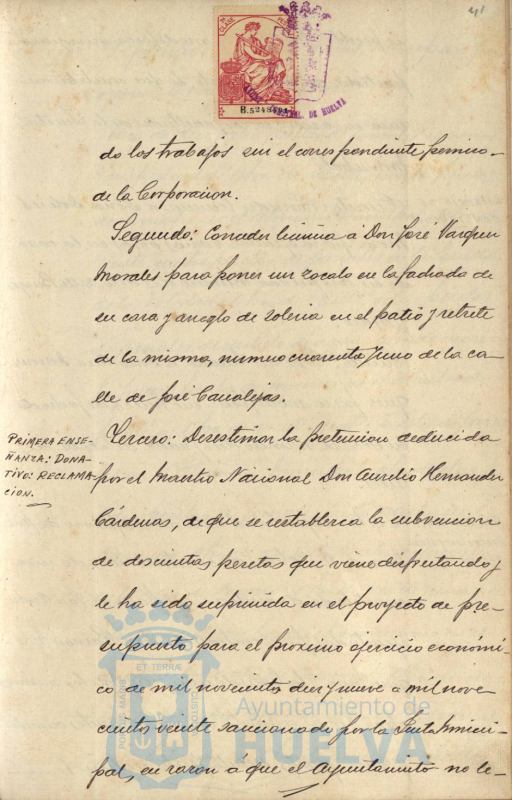 41
B.5248894
do los trabajos sin el correspondiente permiso
de la Corporacion.
Segundo: Conceder licencia á Don José Vazquez
Morales para poner un zocalo en la fachada de
su casa y arreglo de soleria en el patio y retrete
de la misma, numero cuarenta y uno de la ca-
lle de José Canalejas.
PRIMERA ENSE-
ÑANZA: DONA-
TIVO: RECLAMA-
CION.
Tercero: Desestimar la pretension deducida
por el Maestro Nacional Don Aurelio Hernandez
Cárdenas, de que se restablezca la subvencion
de doscientas pesetas que viene disfrutando y
le ha sido suprimida en el proyecto de pre-
supuesto para el proximo ejercicio económi-
co de mil novecientos diez y nueve a mil nove-
cientos veinte sancionado por la Junta Munici-
pal, en razon á que el Ayuntamiento no le-
Ayuntamiento de
HUELVA